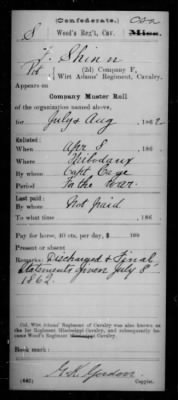 (Confederate.)
S Wood's Reg't, Cav. Miss. CSA
J. Shinn
Pvt, (2d) Company F,
Wirt Adams' Regiment, Cavalry.
Appears on
Company Muster Roll
of the organization named above,
for July & Aug, 1862
Enlisted:
When Apr 8, 186 .
Where Thibodaux
By whom Capt. Cage
Period For the War.
Last paid:
By whom Not paid
To what time , 186 .
Pay for horse, 40 cts. per day, $ 100
Present or absent
Remarks: Discharged & Final
statements given July 8"
1862.
Col. Wirt Adams' Regiment of Cavalry was also known as
the 1st Regiment Mississippi Cavalry, and subsequently became
Wood's Regiment Mississippi Cavalry.
Book mark:
G. K. Gordon
(642) Copyist.